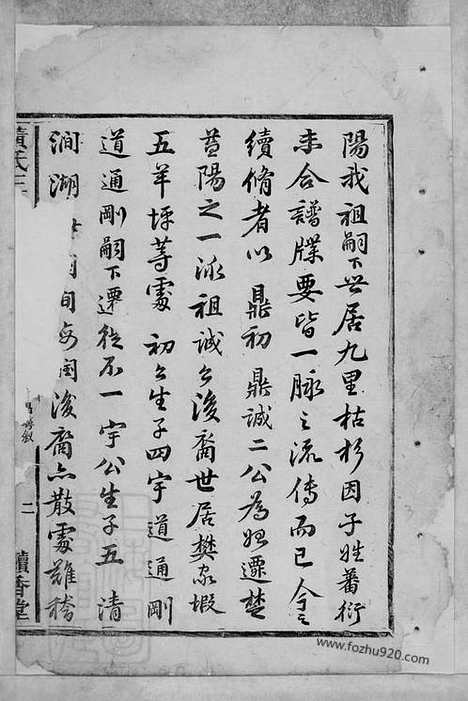 陽我祖嗣下世居九里枯杉因子姓蕃衍
未合譜牒要皆一脉之流傳而已今之
續脩者以鼎初鼎誠二公為始遷楚
益陽之一派祖誠公後裔世居樊家塅
五羊坪等處初公生子四宇道通剛
道通剛嗣下遷徙不一宇公生子五清
澗湖
旬安閩後裔亦散處難稽
黃氏三
叙
二
讀香堂
www.fozhu920.com